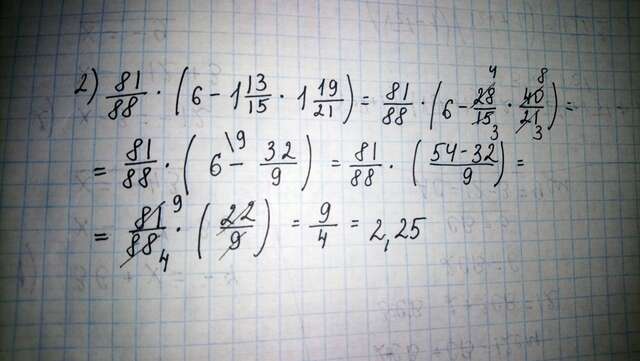 2) 81/88 · (6 - 1 13/15 · 1 19/21) = 81/88 · (6 - 28/15 · 40/21) = 4 8 3 3
= 81/88 · (6 \9 - 32/9) = 81/88 · (54-32/9) =
= 81/88 · (22/9) = 9/4 = 2,25 9 4